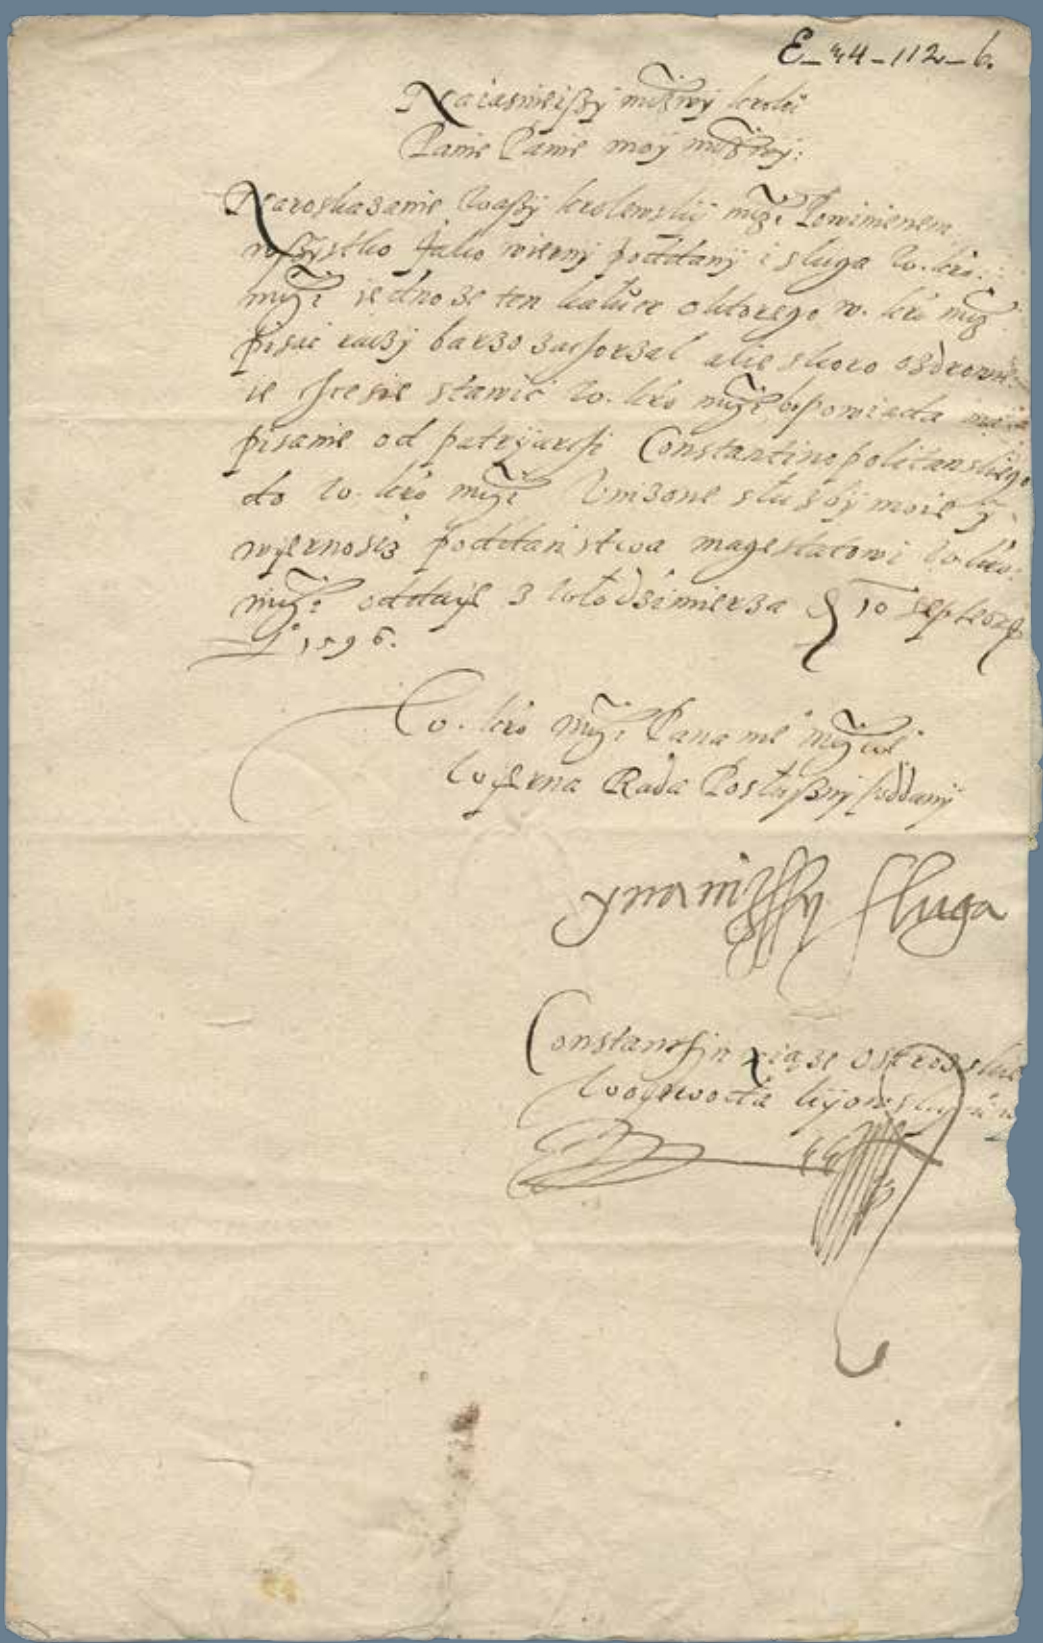 E_44_112_6.
Naiasnieißÿ miłßciwÿ krolu
Panie Panie moÿ miłßciwÿ:
Naroskazanie waßÿ krolewskiÿ mczi Powinienem
wßÿstko Jako wiernÿ poddanÿ i sługa w. kro:
mczi iedno ze ten ktorego w. kro mcz
pisac raczÿ barzo zachorzal alie skoro ozdrowie
ie chcesie stawic w. kro mczi opowiada
pisanie od patrÿarchi Constantinopolitanskiego
do w. kro mczi Unizone słuzbÿ moie ÿ
wÿernosiz poddanstwa magestatowi w. kro:
mczi oddaÿe z Włodzimierza 10 Septembr
1596.
w. kro mczi Pana me° mcziwe°
wÿerna Rada Posłußnÿ Poddanÿ
ÿ nanizssÿ sługa
Constantÿn xiąze Ostrozskie
woÿewoda kÿowskÿ